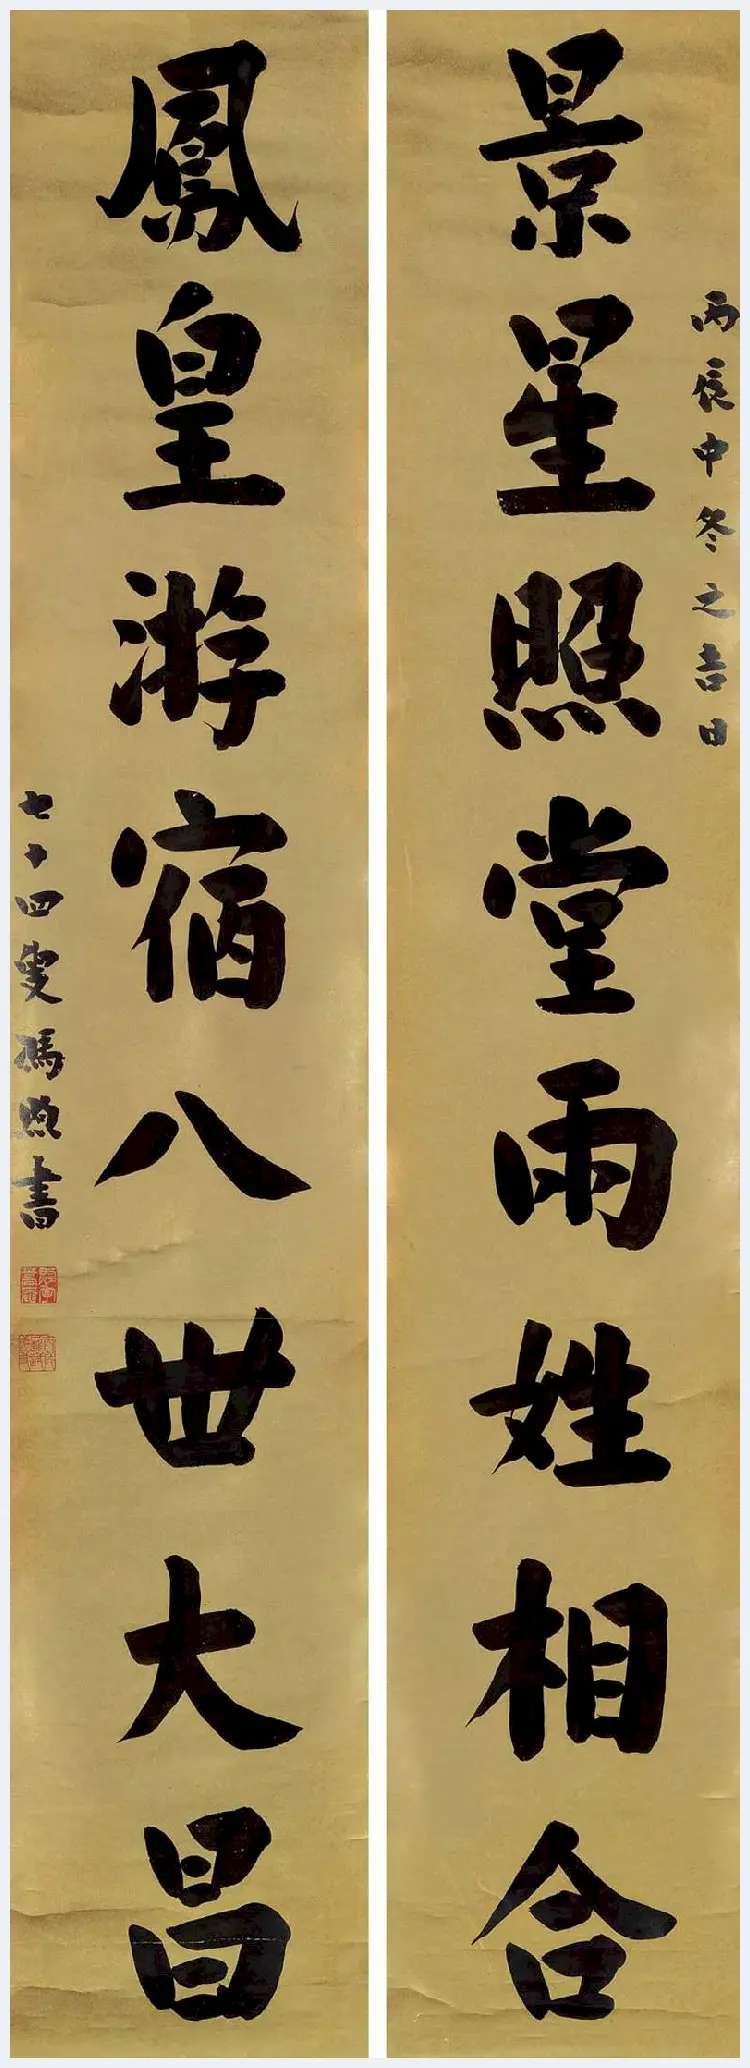 丙辰中冬之吉日
景星照堂兩姓相合
鳳皇游宿八世大昌
七十四叟馮煦書